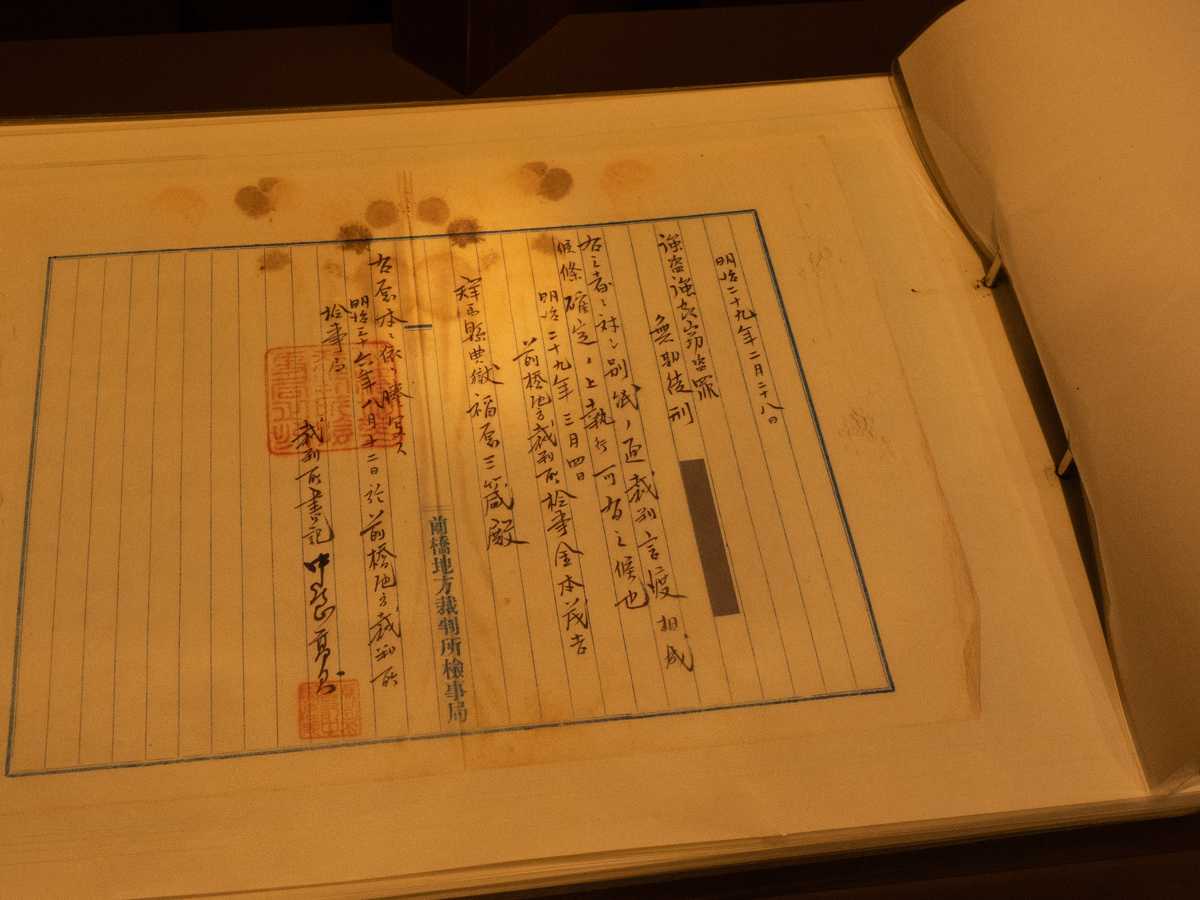 明治二十九年二月二十八日
強盗強姦窃盗罪
無期徒刑
右之者ニ対シ別紙ノ通裁判言渡相成
候條確定ノ上執行可有之候也
明治二十九年三月四日
前橋地方裁判所検事金本茂吉
群馬縣典獄福原三箴殿
前橋地方裁判所検事局
右原本ニ依リ謄写ス
明治三十六年八月十二日於前橋地方裁判所
検事局
裁判所書記